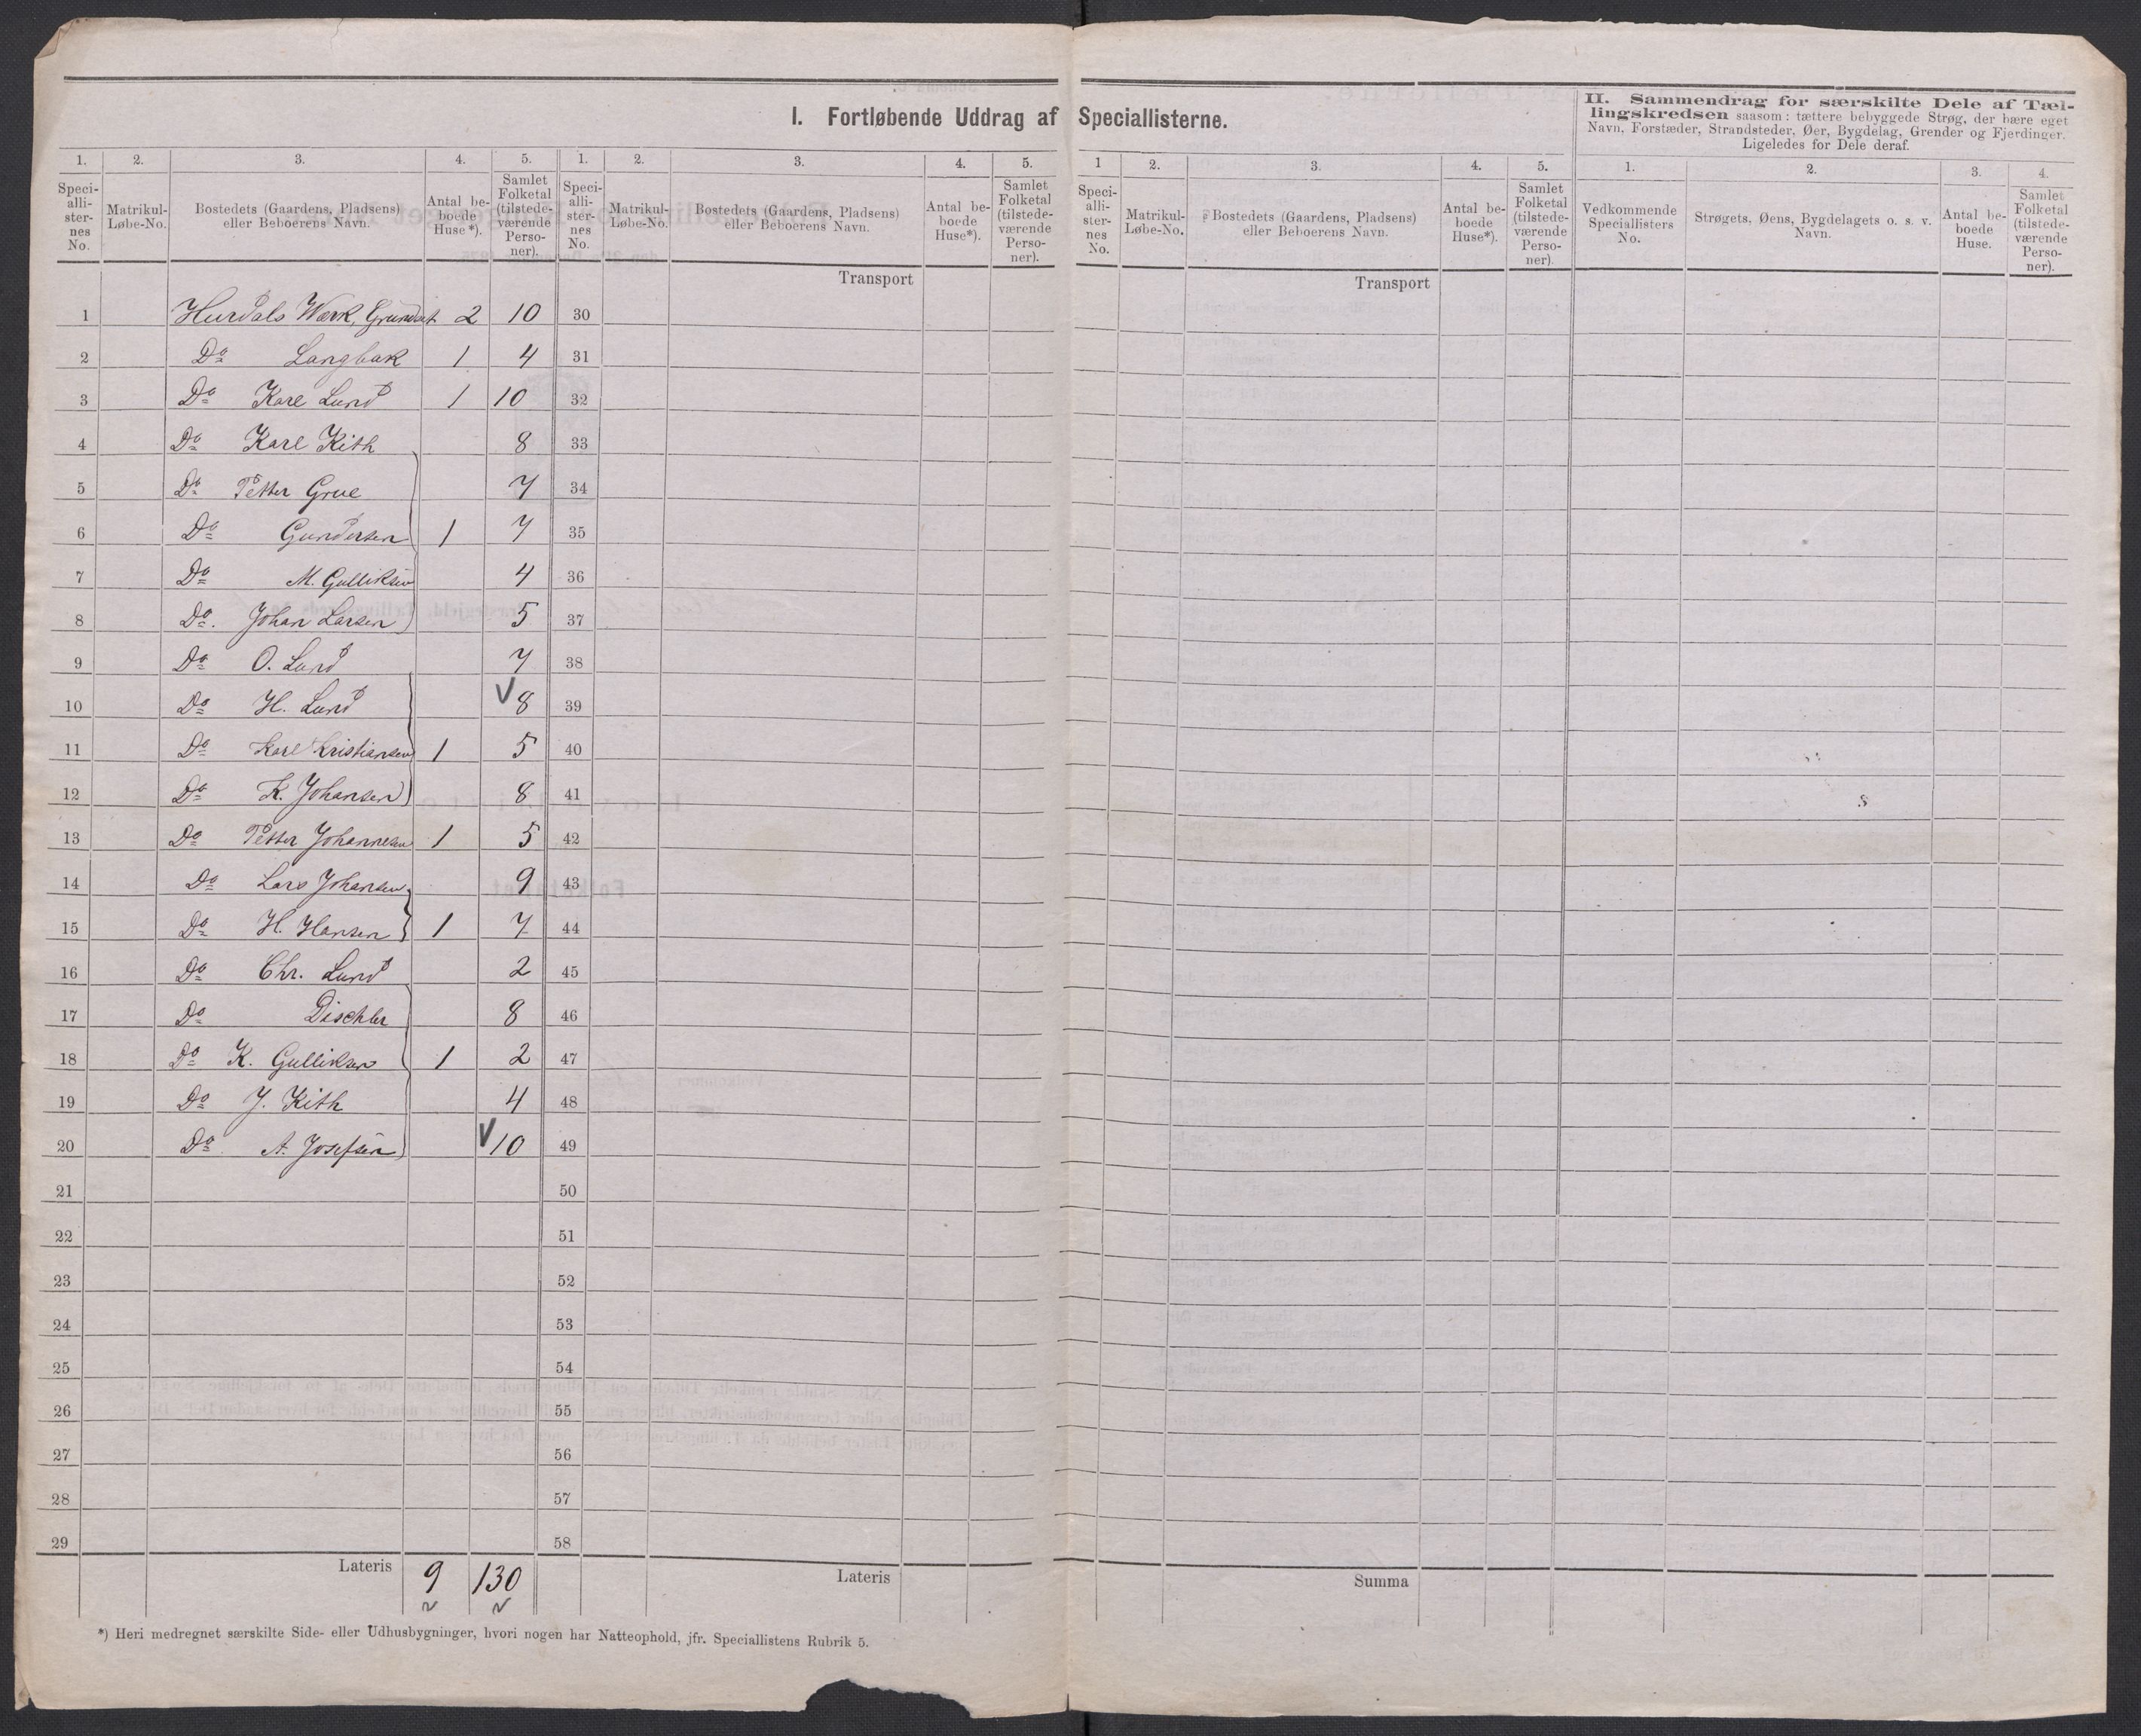 I. Fortløbende Uddrag af Speciallisterne.
II. Sammendrag for særskilte Dele af Tæl-
lingskredsen saasom: tættere bebyggede Strøg, der bære eget
Navn, Forstæder, Strandsteder, Øer, Bygdelag, Grender og Fjerdinger.
Ligeledes for Dele deraf.
1. 2. 3. 4. 5. 1. 2. 3. 4. 5. 1 2. 3. 4. 5. 1. 2. 3. 4.
Speci-
alli-
ster-
nes
No.
Matrikul-
Løbe-No.
Bostedets (Gaardens, Pladsens)
eller Beboerens Navn.
Antal be-
boede
Huse*).
Samlet
Folketal
(tilstede-
værende
Perso-
ner).
Speci-
alli-
ster-
nes
No.
Matrikul-
Løbe-No.
Bostedets (Gaardens, Pladsens)
eller Beboerens Navn.
Antal be-
boede
Huse*).
Samlet
Folketal
(tilstede-
værende
Perso-
ner).
Speci-
alli-
ster-
nes
No.
Matrikul-
Løbe-No.
Bostedets (Gaardens, Pladsens)
eller Beboerens Navn.
Antal be-
boede
Huse*).
Samlet
Folketal
(tilstede-
værende
Perso-
ner).
Vedkommende
Speciallisters
No.
Strøgets, Øens, Bygdelagets o. s. v.
Navn.
Antal be-
boede
Huse.
Samlet
Folketal
(tilstede-
værende
Perso-
ner).
Transport Transport
1 Hurdals Værk, Grundset 2 10 30
2 Do Langbak 1 4 31
3 Do Karl Lund 1 10 32
4 Do Karl Kith 8 33
5 Do Petter Grue 7 34
6 Do Gundersen 1 7 35
7 Do M. Gulliksen 4 36
8 Do. Johan Larsen 5 37
9 Do O. Lund 7 38
10 Do H. Lund V 8 39
11 Do Karl Kristiansen 1 5 40
12 Do K. Johansen 8 41
13 Do Petter Johannesen 1 5 42
14 Do Lars Johansen 9 43
15 Do H. Hansen 1 7 44
16 Do Chr. Lund 2 45
17 Do Dischler 8 46
18 Do K. Gulliksen 1 2 47
19 Do J. Kith 4 48
20 Do A. Josefsen V 10 49
21 50
22 51
23 52
24 53
25 54
26 55
27 56
28 57
29 58
Lateris 9 130 Lateris Summa
*) Heri medregnet særskilte Side- eller Udhusbygninger, hvori nogen har Natteophold, jfr. Speciallistens Rubrik 5.